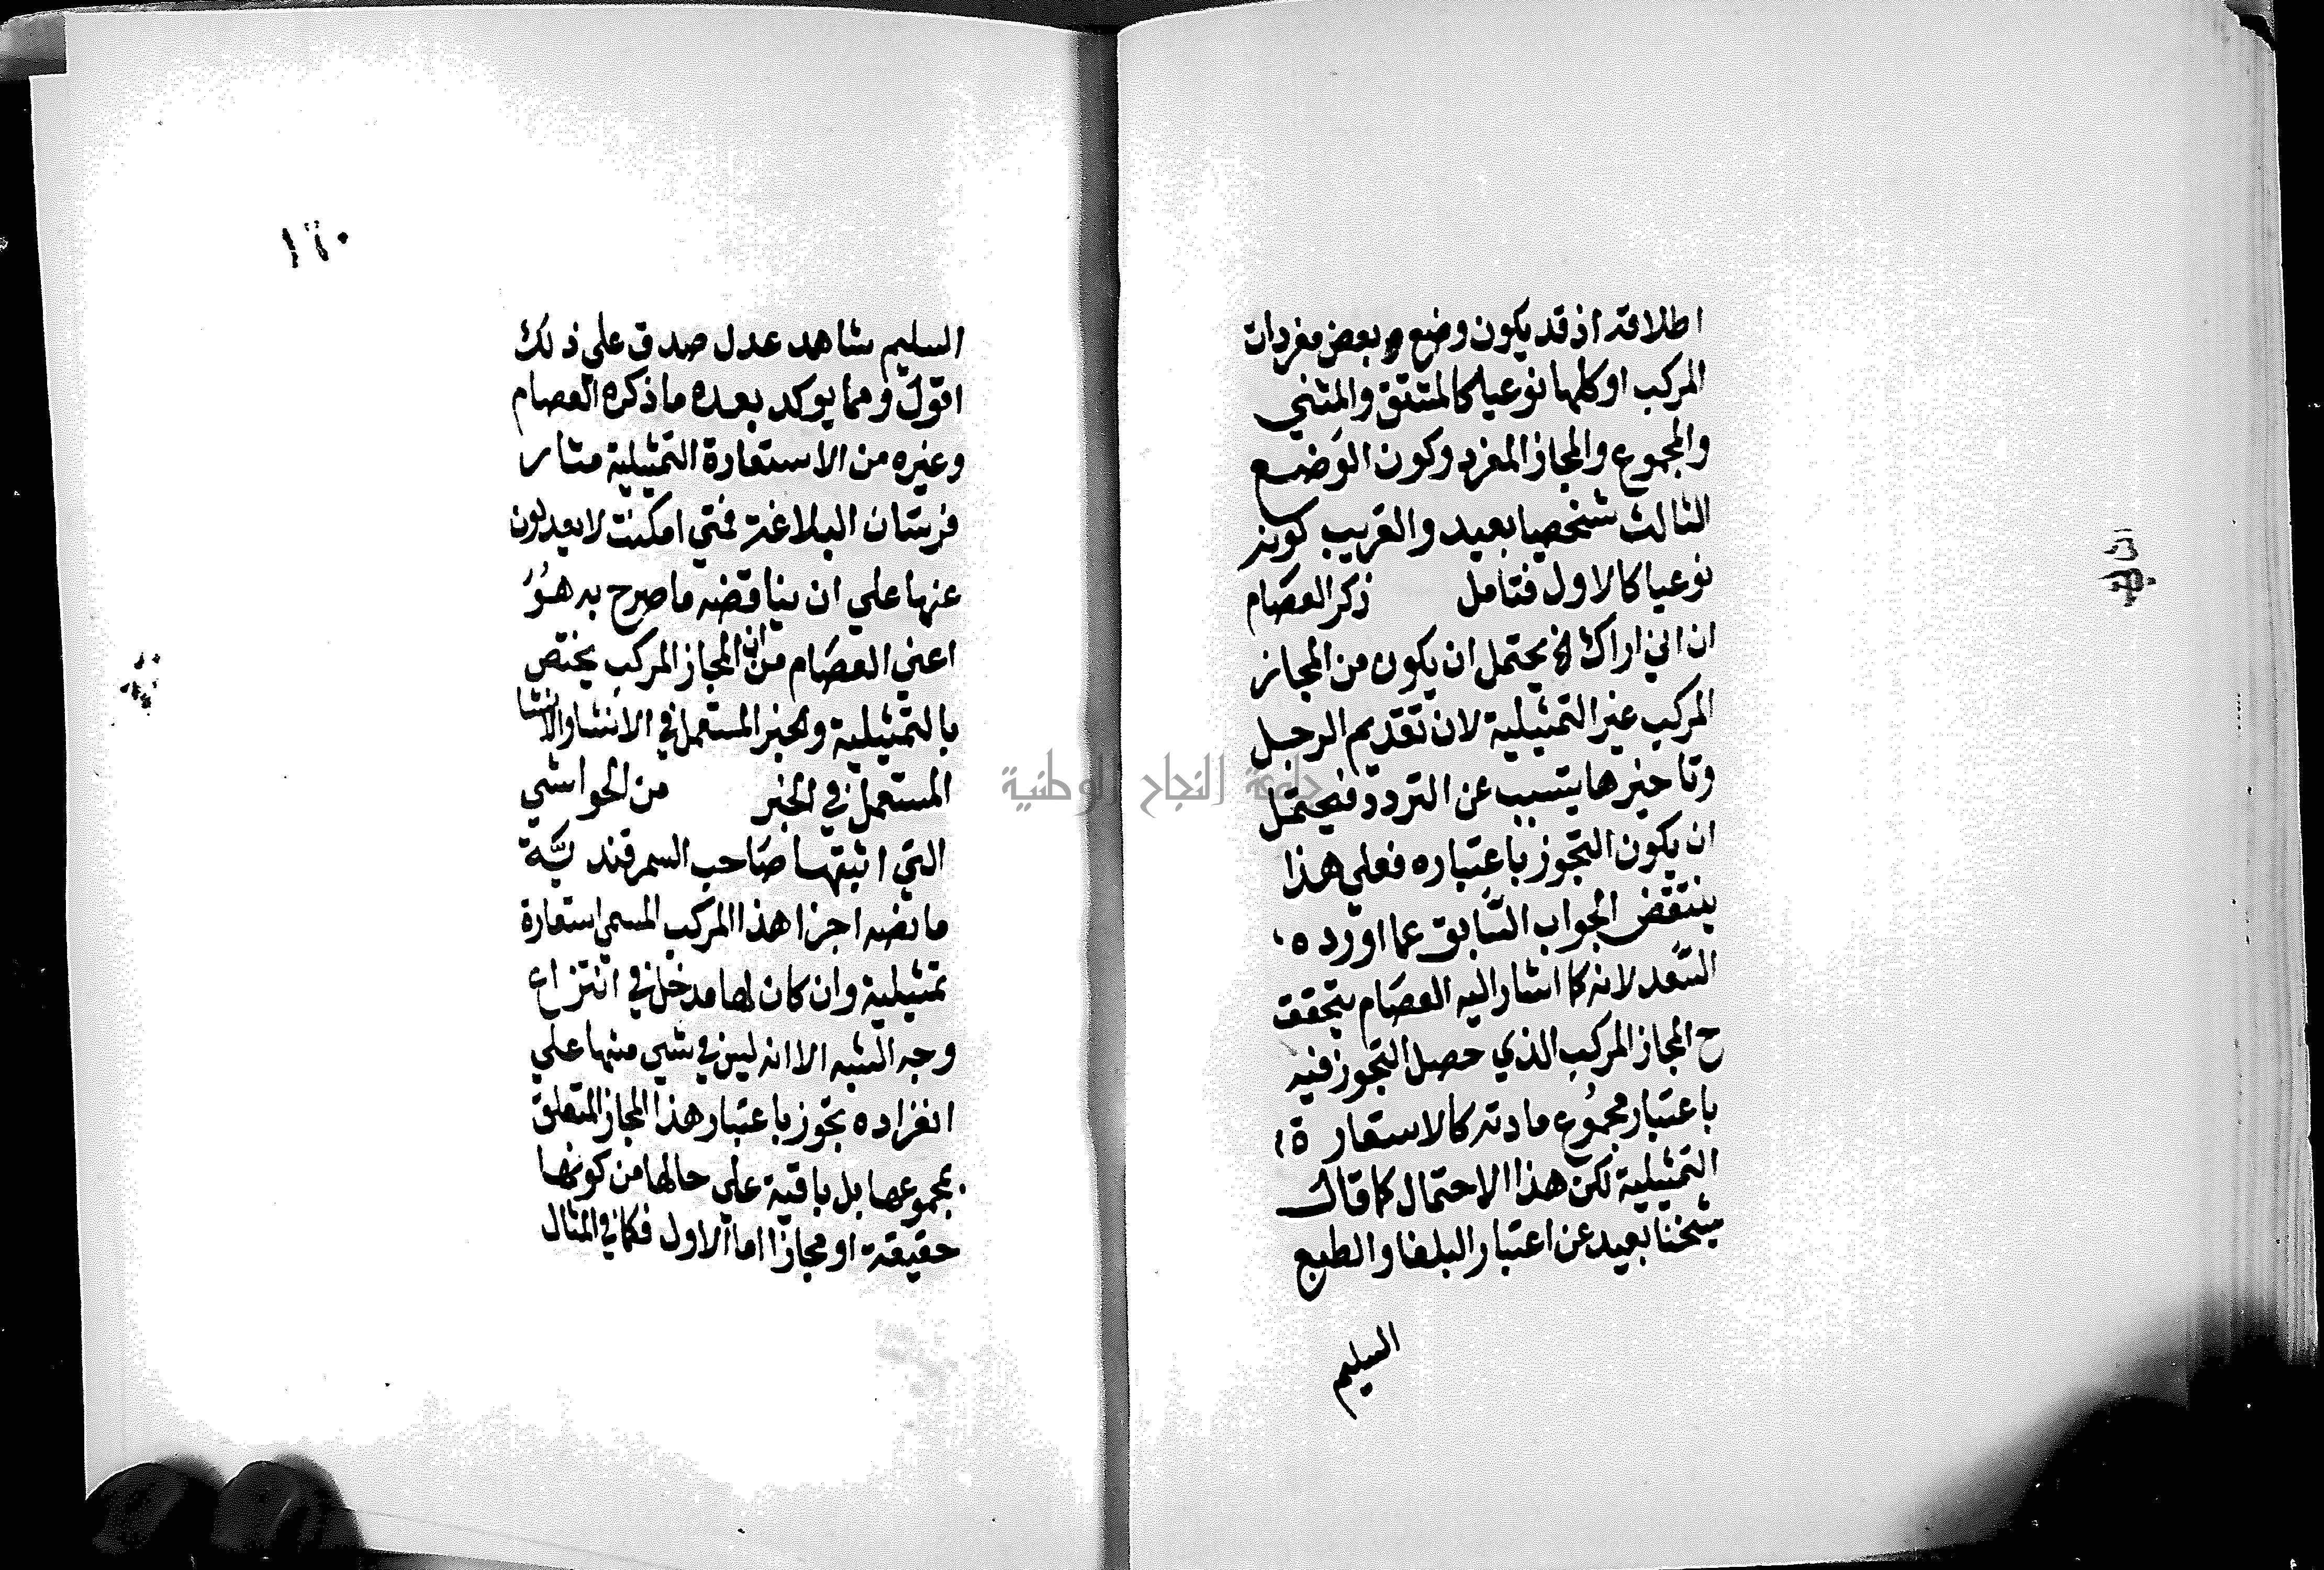 اطلاقه اذ قد يكون وضع بعض مفردات
المركب او كلها نوعيا كالمشتق والمثني
والمجموع والمجاز المفرد وكون الوضع
الثالث شخصيا بعيد والقريب كونه
نوعيا كالاول فتامل ذكر العصام
ان اني اراك الخ يحتمل ان يكون من المجاز
المركب غير التمثيلية لان تقديم الرجل
وتاخيرها يتسبب عن التردد فيحتمل
ان يكون التجوز باعتباره فعلي هذا
ينتقض الجواب السابق عما اورده
السعد لانه كما اشار اليه العصام يتحقق
ح المجاز المركب الذي حصل التجوز فيه
باعتبار مجموع مادته كالاستعارة
التمثيلية لكن هذا الاحتمال كما قال
شيخنا بعيد عن اعتبار البلغا والطبع
السليم
١٦٠
السليم شاهد عدل صدق علي ذلك
اقول ومما يوكد بعده ما ذكره العصام
وغيره من الاستعارة التمثيلية مثار
فرسان البلاغة فمتي امكنت لا يعدلون
عنها علي ان يناقضه ما صرح به هو
اعني العصام من ان المجاز المركب يختص
بالتمثيلية والخبر المستعمل في الانشا والانشا
المستعمل في الخبر من الحواشي
التي اثبتها صاحب السمرقندية
ما نصه اجزا هذا المركب المسمي استعارة
تمثيلية وان كان لها مدخل في انتزاع
وجه الشبه الا انه ليس في شي منها علي
انفراده تجوز باعتبار هذا المجاز المتعلق
بمجموعها بل باقية علي حالها من كونها
حقيقة او مجازا اما الاول فكما في المثال
جامعة النجاح الوطنية